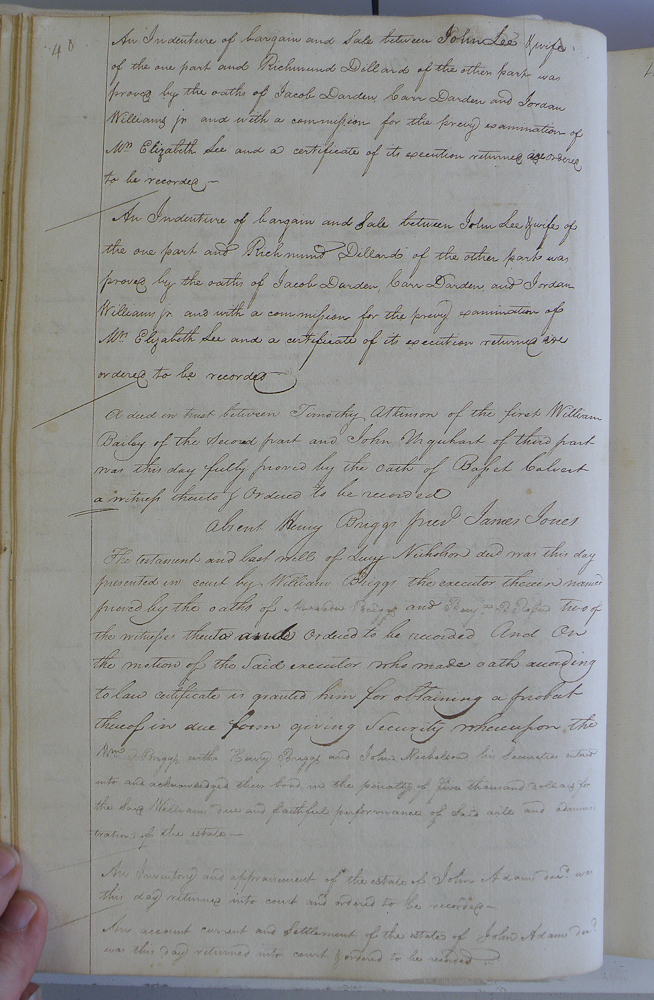 48
An Indenture of bargain and Sale between John Lee & wife
of the one part and Richmund Dillard of the other part was
proved by the oaths of Jacob Darden, Carr Darden and Jordan
Williams jr and with a commission for the privy examination of
Mrs Elizabeth Lee and a certificate of its execution returned are ordered
to be recorded —
An Indenture of bargain and Sale between John Lee & wife of
the one part and Richmund Dillard of the other part was
proved by the oaths of Jacob Darden, Carr Darden, and Jordan
Williams jr and with a commission for the privy examination of
Mrs Elizabeth Lee and a certificate of its execution returned are
ordered to be recorded —
A deed in trust between Timothy Atkinson of the first William
Bailey of the Second part and John Urquhart of third part
was this day fully proved by the oath of Basset Calvert
a witness thereto & Ordered to be recorded
absent Henry Briggs pres.d James Jones
The testament and last will of Lucy Nicholson decd was this day
presented in court by William Briggs the executor therein named
proved by the oaths of and two of
the witness thereto and Ordered to be recorded And On
the motion of the Said executor who made oath according
to law certificate is granted him for obtaining a probat
thereof in due form giving Security whereupon the
Wm Briggs with Henry Briggs and John Nicholson his Securities entered
into and acknowledged their bond in the penalty of five thousand dollars for
the Said William due and faithful performance of Said will and adminis-
tration of the estate —
An Inventory and appraisement of the estate of John Adams decd. was
this day returned into court and ordered to be recorded —
An account current and Settlement of the estate of John Adams decd.
was this day returned into court & ordered to be recorded —